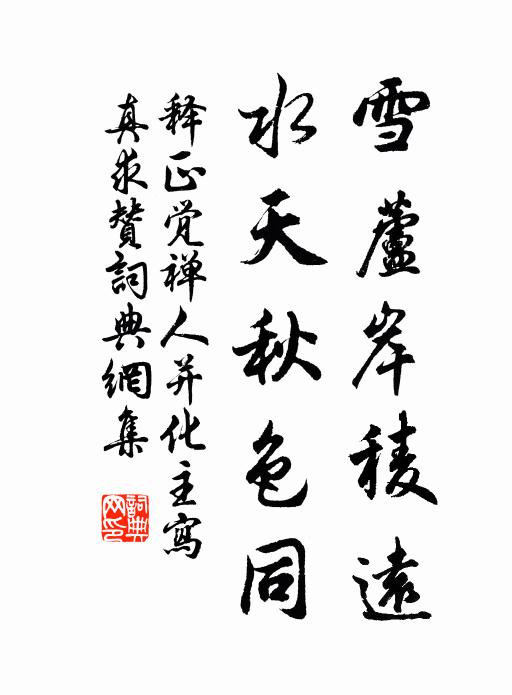 雪蘆岸稜遠
水天秋色同
释正觉禅人并化主寫
真求贊詞典網集
詞典网印